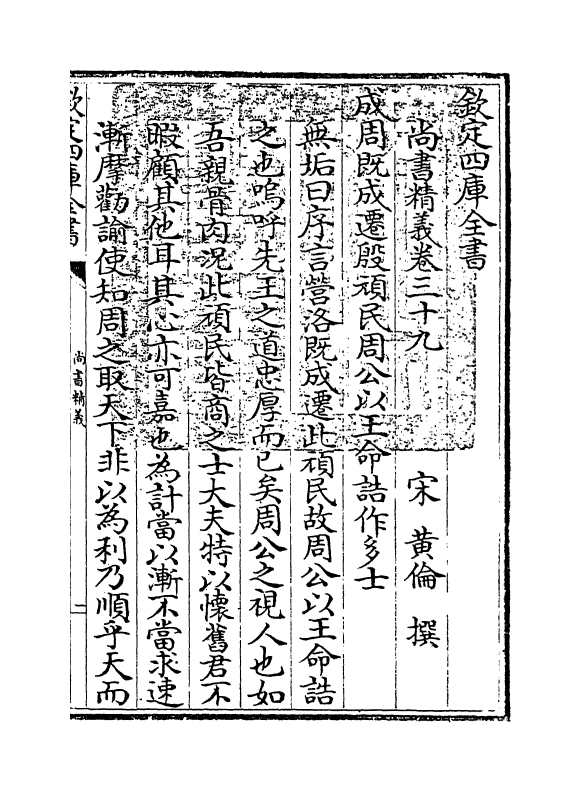 欽定四庫全書
尚書精義卷三十九
宋 黃倫 撰
成周既成遷殷頑民周公以王命誥作多士
無垢曰序言營洛既成遷此頑民故周公以王命誥
之也嗚呼先王之道忠厚而已矣周公之視人也如
吾親骨肉況此頑民皆商之士大夫特以懷舊君不
暇顧其他耳其心亦可嘉也為計當以漸不當求速
漸摩勸諭使知周之取天下非以為利乃順乎天而
欽定四庫全書
尚書精義
二